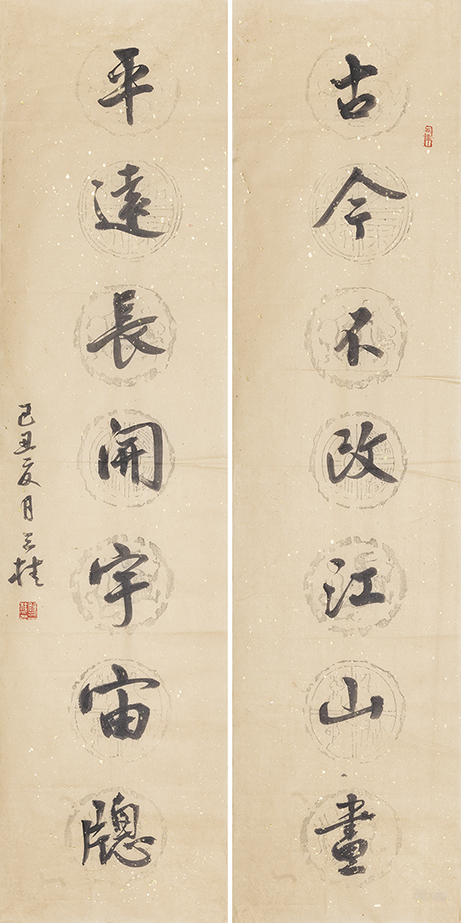 古今不改江山畫
平遠長開宇宙牕
己丑夏月